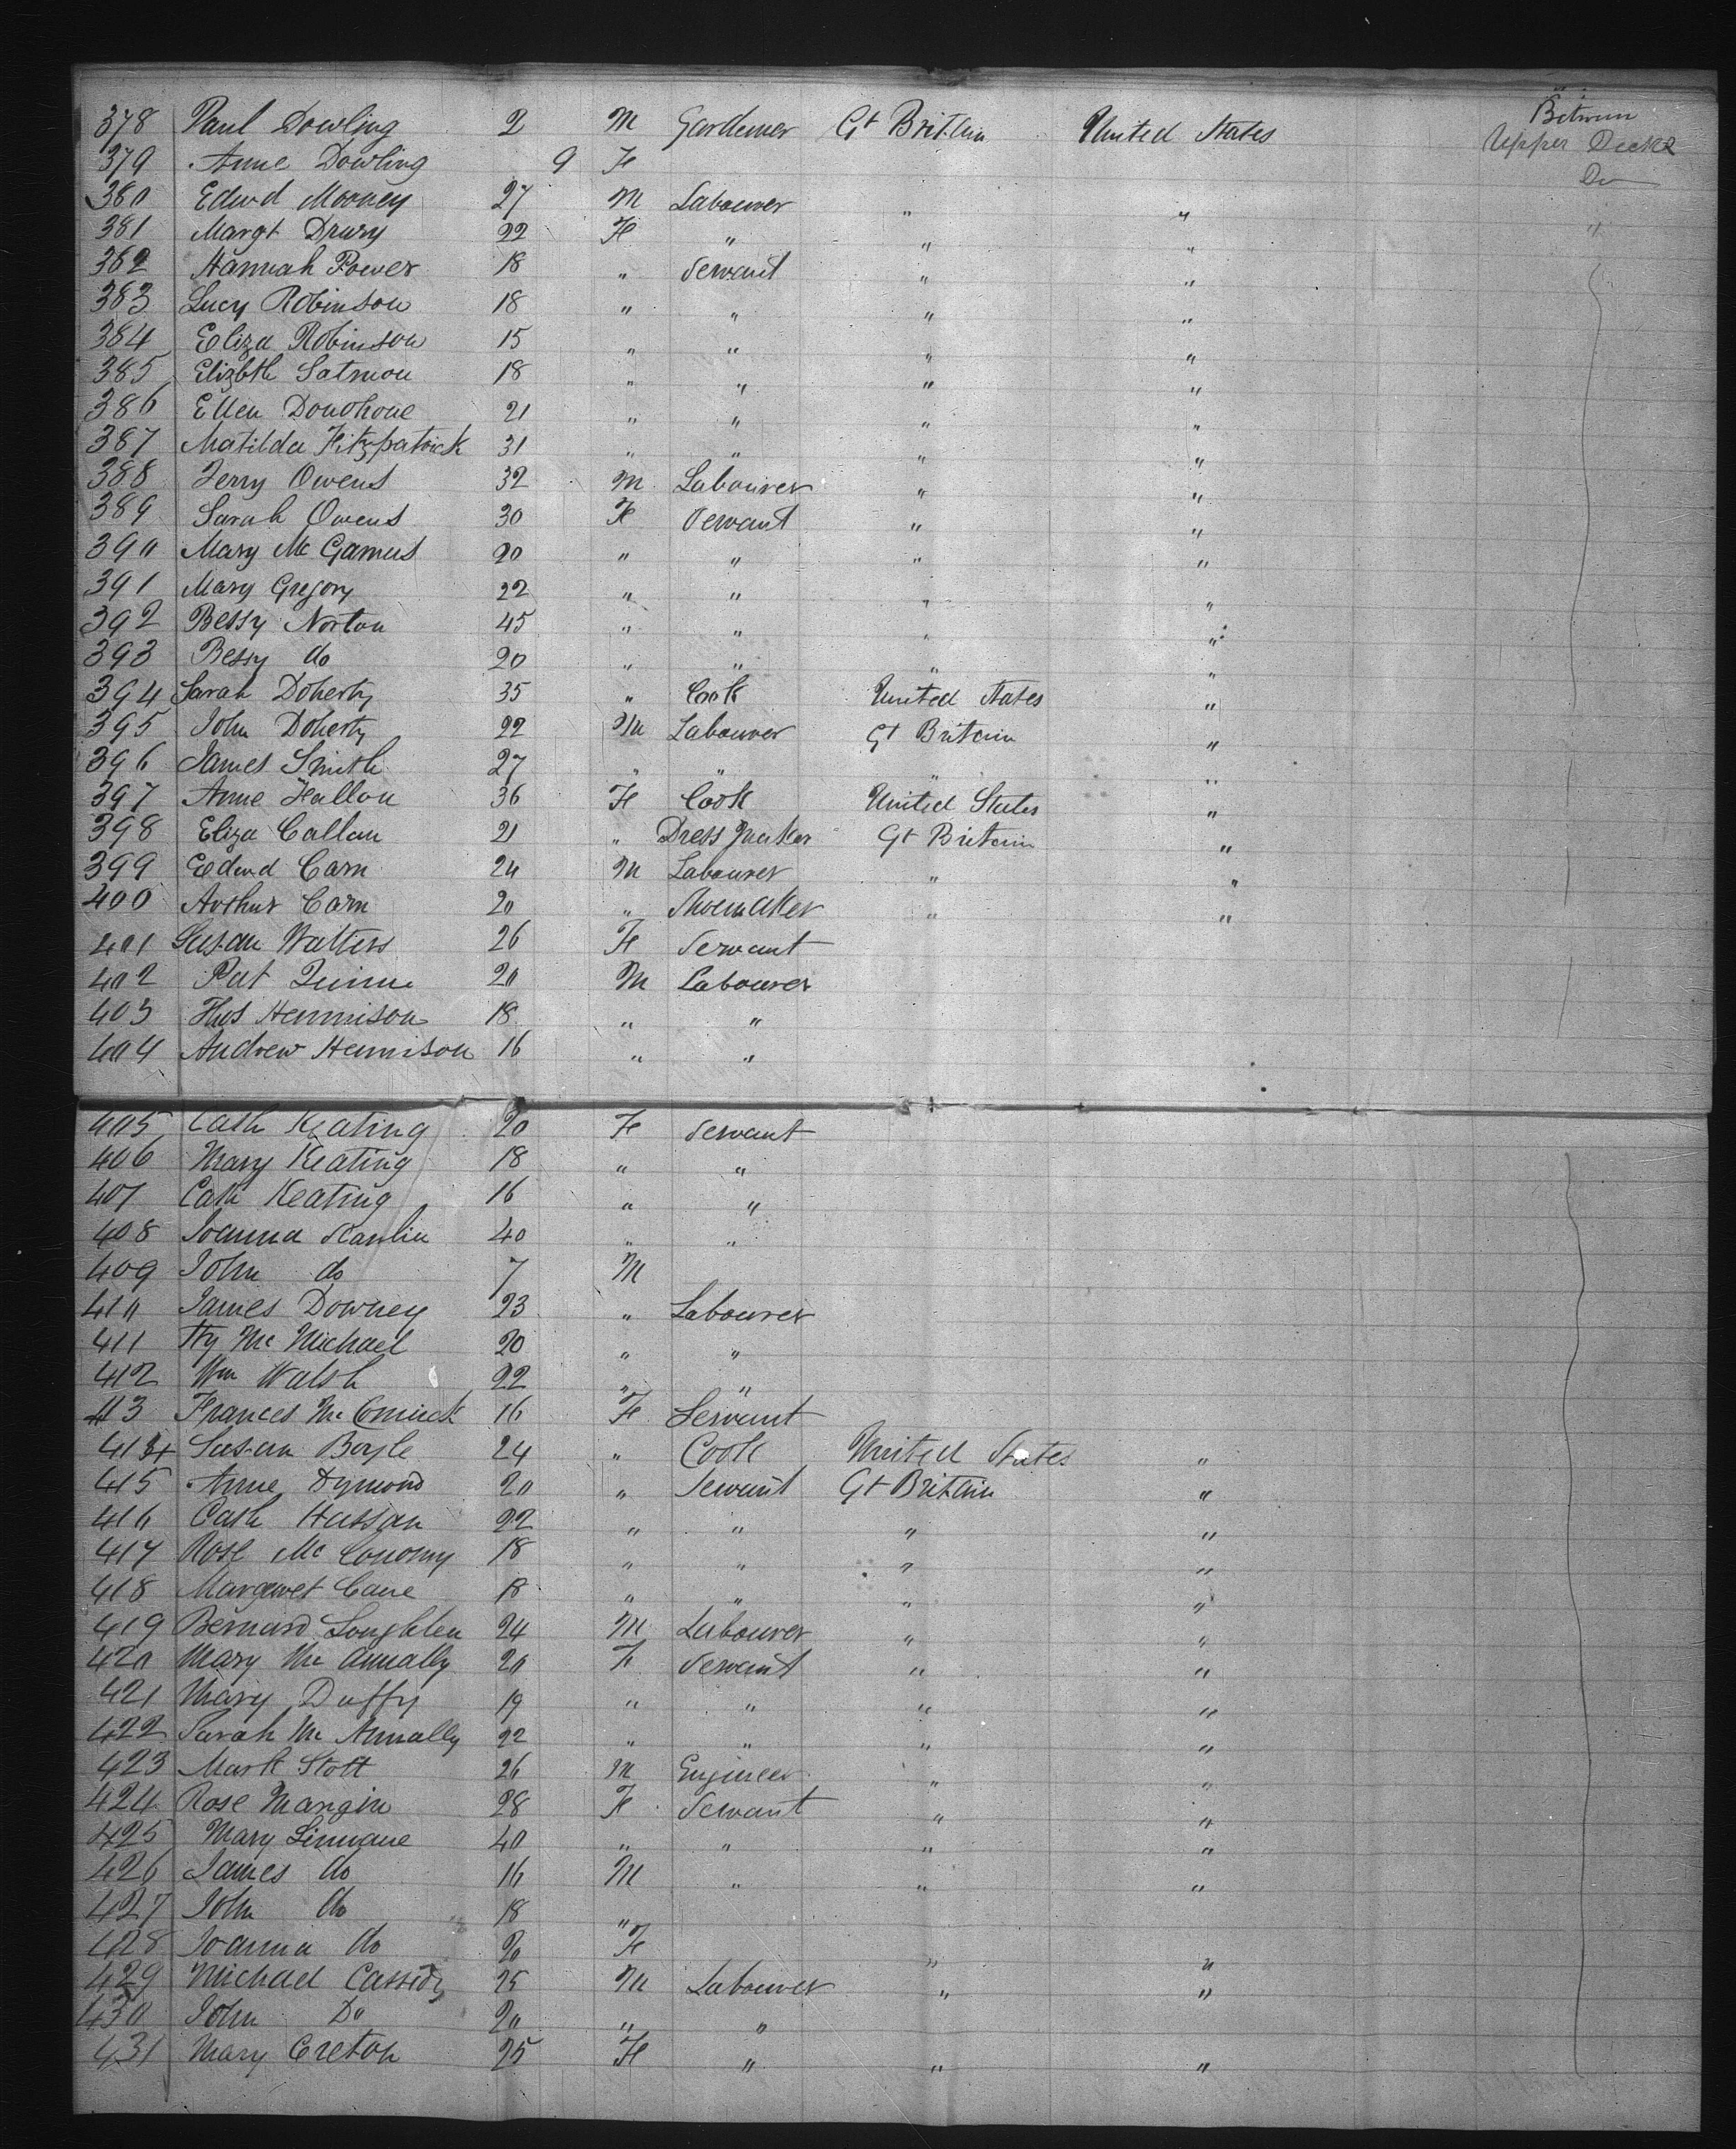 378 Paul Dowling 2 M Gardener Gt Britain United States Between Upper Decks
379 Anne Dowling 9 F Do
380 Edwd Mooney 27 M Labourer " " "
381 Margt Drury 22 F " " "
382 Hannah Power 18 " Servant " "
383 Lucy Robinson 18 " " " "
384 Eliza Robinson 15 " " " "
385 Elizbth Satmon 18 " " " "
386 Ellen Donohoue 21 " " " "
387 Matilda Fitzpatrick 31 " " " "
388 Terry Owens 32 M Labourer " "
389 Sarah Owens 30 F Servant " "
390 Mary Mc Gamus 20 " " " "
391 Mary Gregory 22 " " " "
392 Bessy Norton 45 " " " "
393 Bessy do 20 " " " "
394 Sarah Doherty 35 " Cook United States "
395 John Doherty 22 M Labourer Gt Britain "
396 James Smith 27 " " " "
397 Anne Fallon 36 F Cook United States "
398 Eliza Callan 21 " Dress Maker Gt Britain "
399 Edwd Carn 24 M Labourer " "
400 Arthur Carn 20 " Shoemaker " "
401 Susan Watters 26 F Servant
402 Pat Quinn 20 M Labourer
403 Thos Hennison 18 " "
404 Andrew Hennison 16 " "
405 Cath Keating 20 F Servant
406 Mary Keating 18 " "
407 Cath Keating 16 " "
408 Joanna 40 " "
409 John do 7 M
410 James Downey 23 " Labourer
411 Hy Mc Michael 20 " "
412 Wm Walsh 22 " "
413 Frances Mc Cormick 16 F Servant
414 Susan Boyle 24 " Cook United States "
415 Anne Dymond 20 " Servant Gt Britain "
416 Cath Hassan 22 " " " "
417 Rose Mc Conomy 18 " " " "
418 Margaret Cane 18 " " " "
419 Bernard Loughlen 24 M Labourer " "
420 Mary Mc Annally 20 F Servant " "
421 Mary Duffy 19 " " " "
422 Sarah Mc Annally 22 " " " "
423 Mark Stott 26 M Engineer " "
424 Rose Mangin 28 F Servant " "
425 Mary Linnane 40 " " " "
426 James do 16 M " " "
427 John do 18 "
428 Joanna do 20 F " "
429 Michael Cassidy 25 M Labourer " "
430 John Do 20 " "
431 Mary Creton 25 F " " "